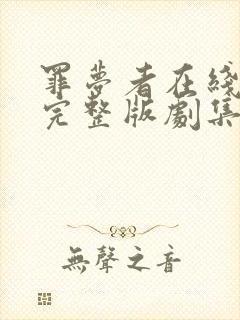 罪夢者在綫
完整版劇集
無聲之音